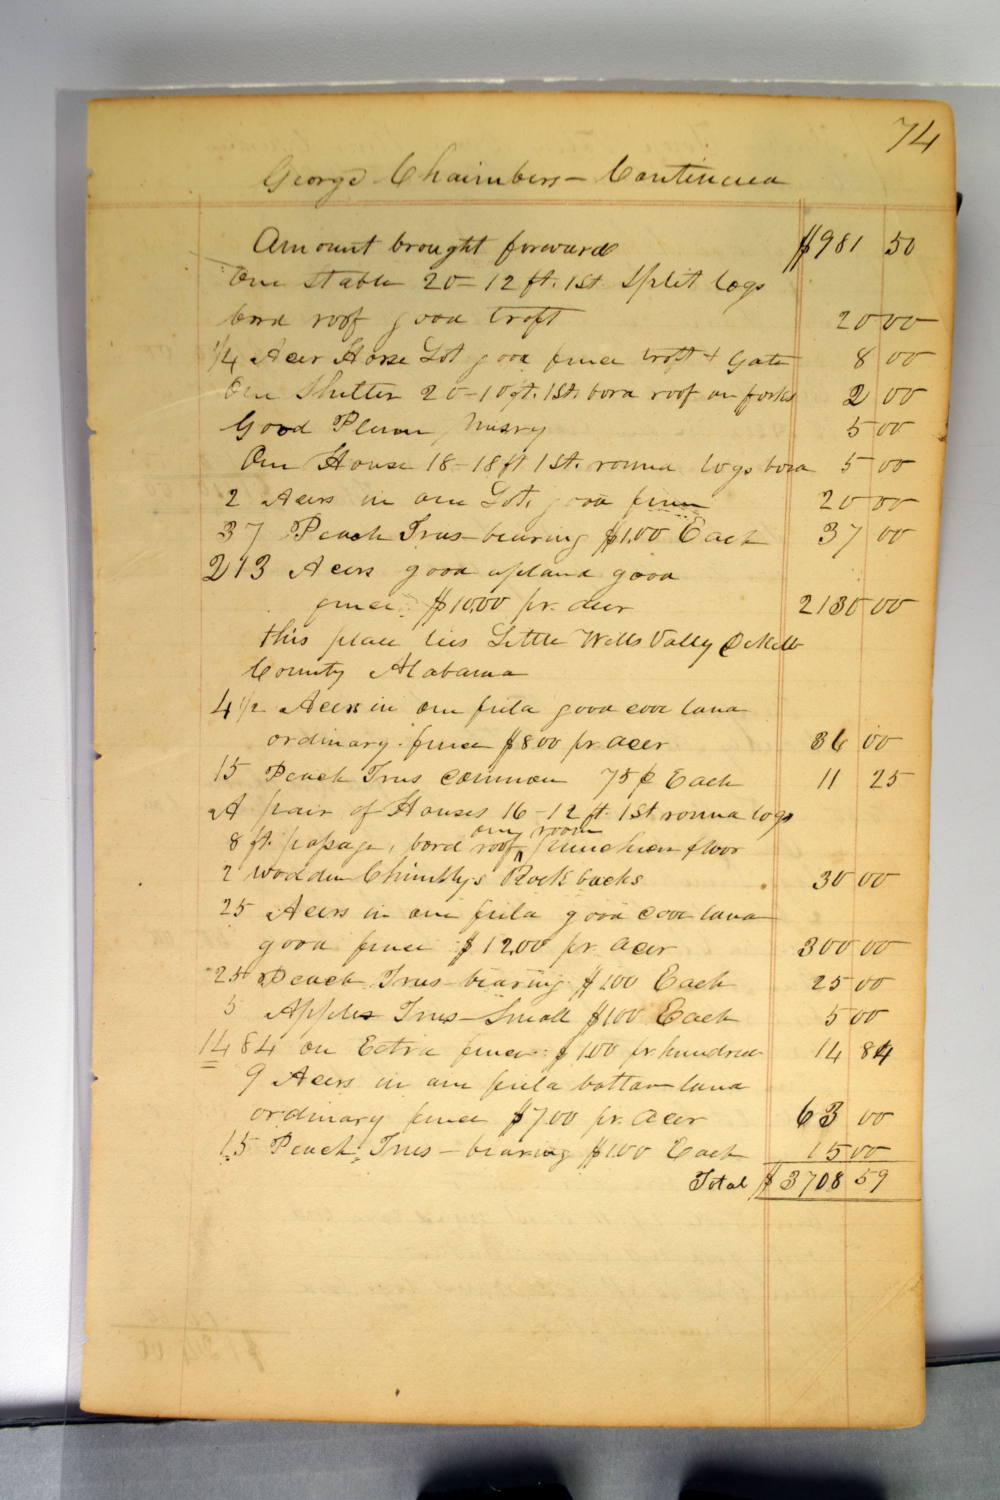 74
George Chaimbers – Continued
Amount brought forward $981 50
One Stable 20–12 ft. 1 St. Split logs
bord roof good troft 20 00
1/4 Acer Horse Lot good fence troft + gate 8 00
One Shelter 20–10 ft. 1 St. bord roof on forks 2 00
Good Plum Nusry 5 00
One House 18–18 ft 1 St. round logs bord 5 00
2 Acers in one Lot, good fence 20 00
37 Peach Trees bearing $1.00 Each 37 00
213 Acers good upland good
fence $10.00 pr. acer 2130 00
this place lies Little Wills Vally DeKalb
County Alabama
4 1/2 Acers in one field good cove land
ordinary fence $8.00 pr. acer 36 00
15 Peach Trees common 75¢ Each 11 25
A pair of Houses 16–12 ft. 1 St round logs
8 ft. passage, bord roof, one room puncheon floor
2 wooden Chimblys Rock backs 30 00
25 Acers in one field good cove land
good fence $12.00 pr. acer 300 00
25 Peach Trees bearing $1.00 Each 25 00
5 Apples Trees – Small $1.00 Each 5 00
1484 on Extra fence $1.00 pr. hundred 14 84
9 Acers in one field bottom land
ordinary fence $7.00 pr. acer 63 00
15 Peach Trees – bearing $1.00 Each 15 00
Total $3708 59